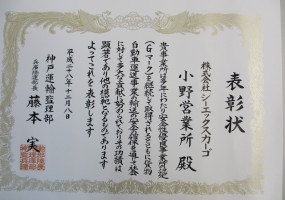 表彰状
株式会社シーエックスカーゴ
小野営業所 殿
貴事業所は多年にわたり安全性優良事業所認定
(Gマーク)を継続して取得されるとともに貨物
自動車運送事業の輸送の安全確保を通じて公益
に対して多大な貢献に努められておりその功績は
顕著であり他の模範となるものであります
よってこれを表彰します
平成二十八年十二月八日
神戸運輸監理部
兵庫陸運部長
藤本 実